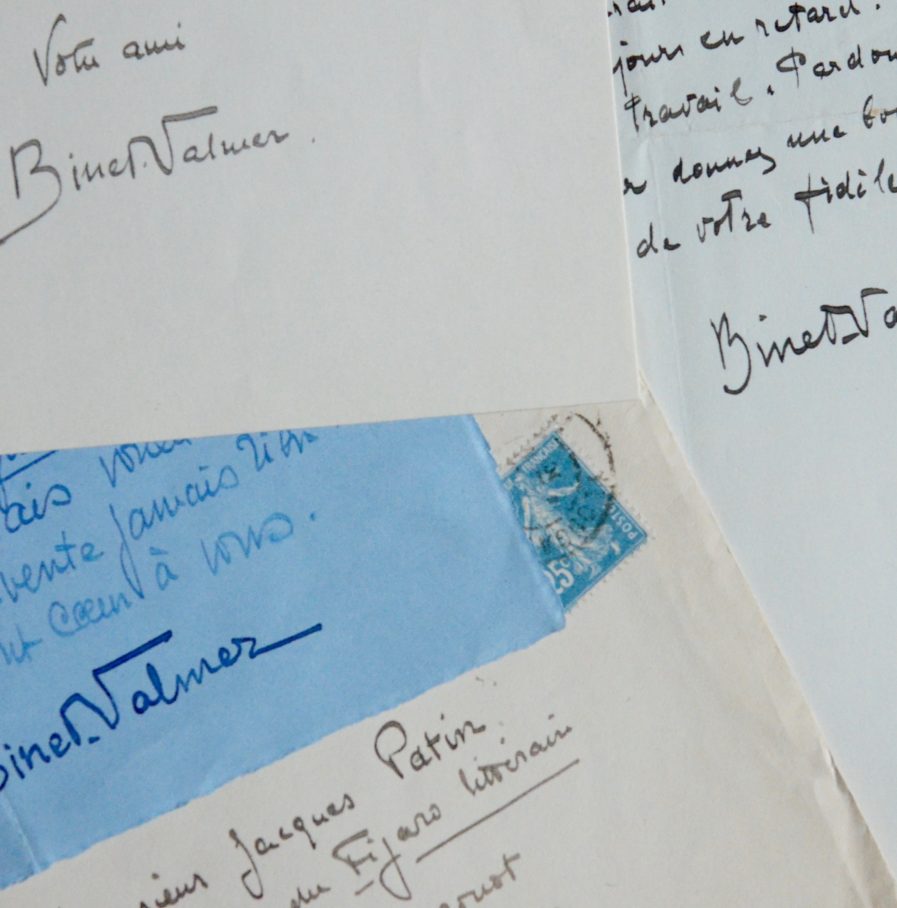 Votre ami
Binet-Valmer.
jours en retard.
travail. Pardon
donnez une bo
de votre fidèle
Binet-Va
ais
vente jamais
Cœur à vous.
Binet-Valmer
FRANÇAISE
POST
25c
sieur Jacques Patin
du Figaro littéraire